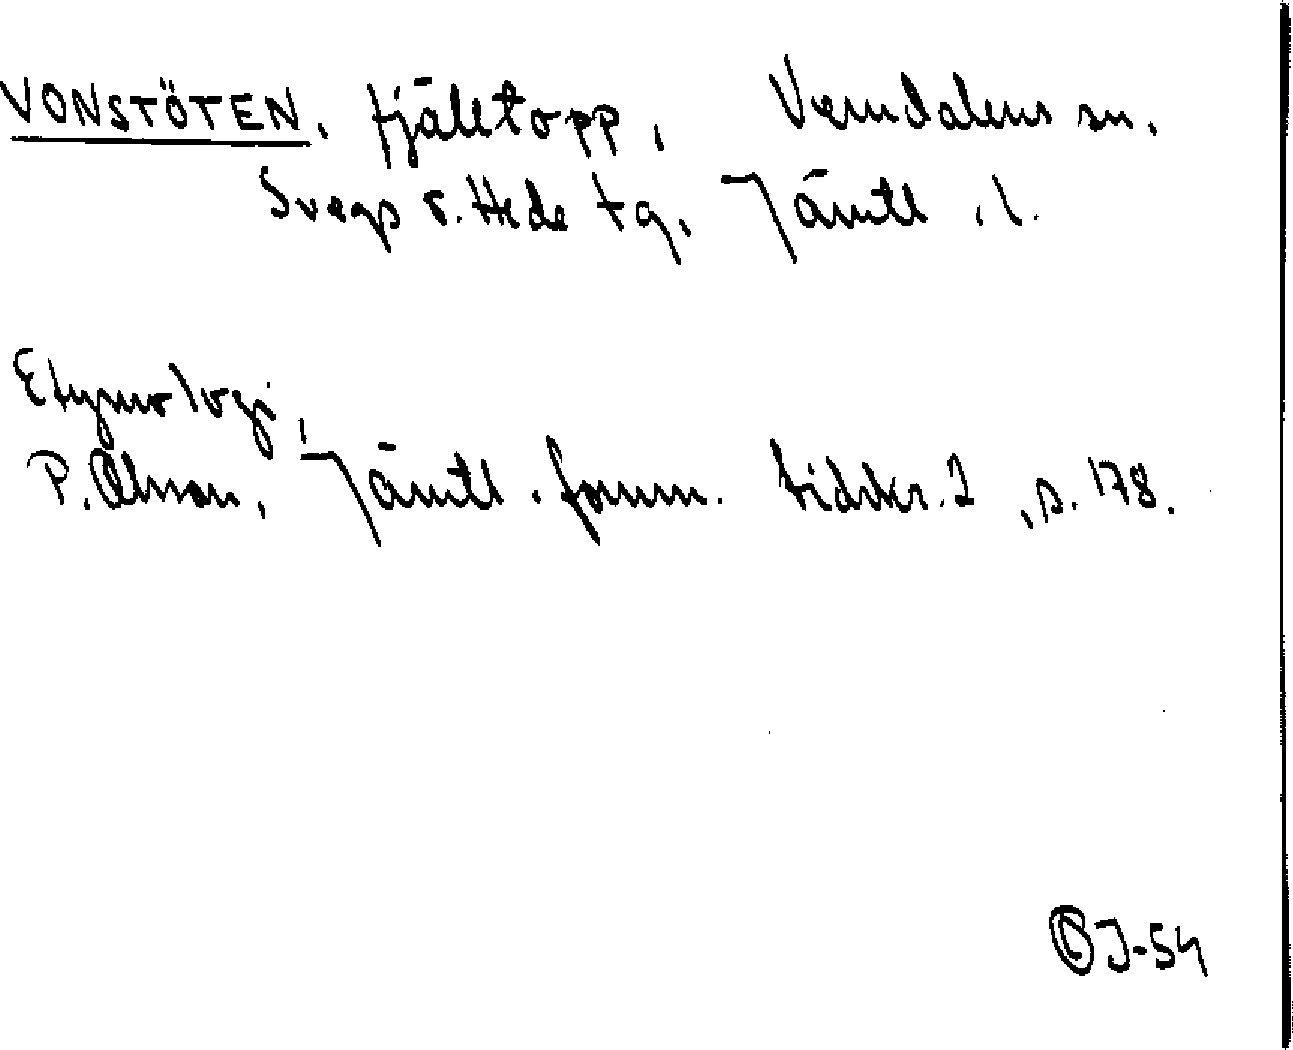 VONSTÖTEN, fjälltopp, Vemdalens sn.
Svegs o. Hede tg, Jämtl. l.
Etymologi,
P. Olsson, Jämtl. fornm. tidskr. 2, s. 178.
OJ-54